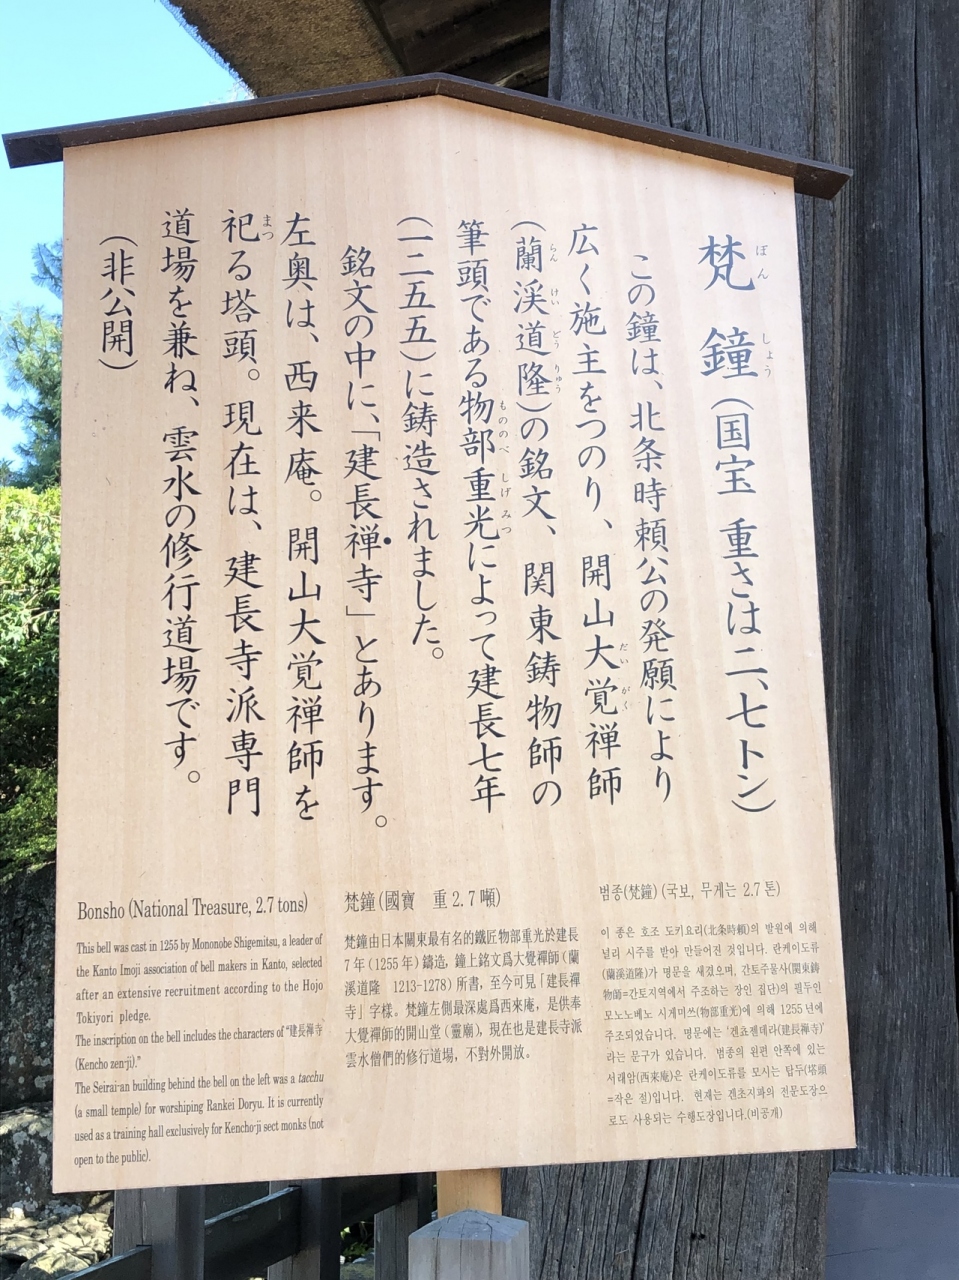 梵鐘(国宝 重さは二、七トン)
ぼん しょう
この鐘は、北条時頼公の発願により
広く施主をつのり、開山大覚禅師
だい がく
(蘭渓道隆)の銘文、関東鋳物師の
らん けい どう りゅう
筆頭である物部重光によって建長七年
もののべ しげ みつ
(一二五五)に鋳造されました。
銘文の中に、「建長禅寺」とあります。
左奥は、西来庵。開山大覚禅師を
祀る塔頭。現在は、建長寺派専門
まつ
道場を兼ね、雲水の修行道場です。
(非公開)
Bonsho (National Treasure, 2.7 tons)
This bell was cast in 1255 by Mononobe Shigemitsu, a leader of
the Kanto Imoji association of bell makers in Kanto, selected
after an extensive recruitment according to the Hojo
Tokiyori pledge.
The inscription on the bell includes the characters of "建長禅寺
(Kencho zen-ji)."
The Seirai-an building behind the bell on the left was a tacchu
(a small temple) for worshiping Rankei Doryu. It is currently
used as a training hall exclusively for Kencho-ji sect monks (not
open to the public).
梵鐘(國寶 重2.7噸)
梵鐘由日本關東最有名的鐵匠物部重光於建長
7年(1255年)鑄造，鐘上銘文爲大覺禪師(蘭
溪道隆 1213-1278)所書，至今可見「建長禪
寺」字樣。梵鐘左側最深處爲西來庵，是供奉
大覺禪師的開山堂(靈廟)，現在也是建長寺派
雲水僧們的修行道場，不對外開放。
범종(梵鐘)(국보, 무게는 2.7톤)
이 종은 호조 도키요리(北条時頼)의 발원에 의해
널리 시주를 받아 만들어진 것입니다. 란케이도류
(蘭溪道隆)가 명문을 새겼으며, 간토주물사(関東鋳
物師=간토지역에서 주조하는 장인 집단)의 필두인
모노노베노 시게미쓰(物部重光)에 의해 1255년에
주조되었습니다. 명문에는 '겐쵸젠데라(建長禅寺)'
라는 문구가 있습니다. 범종의 왼편 안쪽에 있는
서래암(西来庵)은 란케이도류를 모시는 탑두(塔頭
=작은 절)입니다. 현재는 겐초지파의 전문도장으
로도 사용되는 수행도장입니다.(비공개)